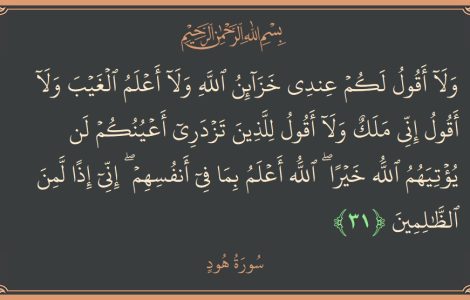 بِسْمِ اللَّهِ الرَّحْمَٰنِ الرَّحِيمِ
وَلَآ أَقُولُ لَكُمْ عِندِى خَزَآئِنُ اللَّهِ وَلَآ أَعْلَمُ الْغَيْبَ وَلَآ
أَقُولُ إِنِّى مَلَكٌ وَلَآ أَقُولُ لِلَّذِينَ تَزْدَرِىٓ أَعْيُنُكُمْ لَن
يُؤْتِيَهُمُ اللَّهُ خَيْرًا ۖ اللَّهُ أَعْلَمُ بِمَا فِىٓ أَنفُسِهِمْ ۖ إِنِّىٓ إِذًا لَّمِنَ
الظَّٰلِمِينَ ﴿٣١﴾
سُورَةُ هُودٍ